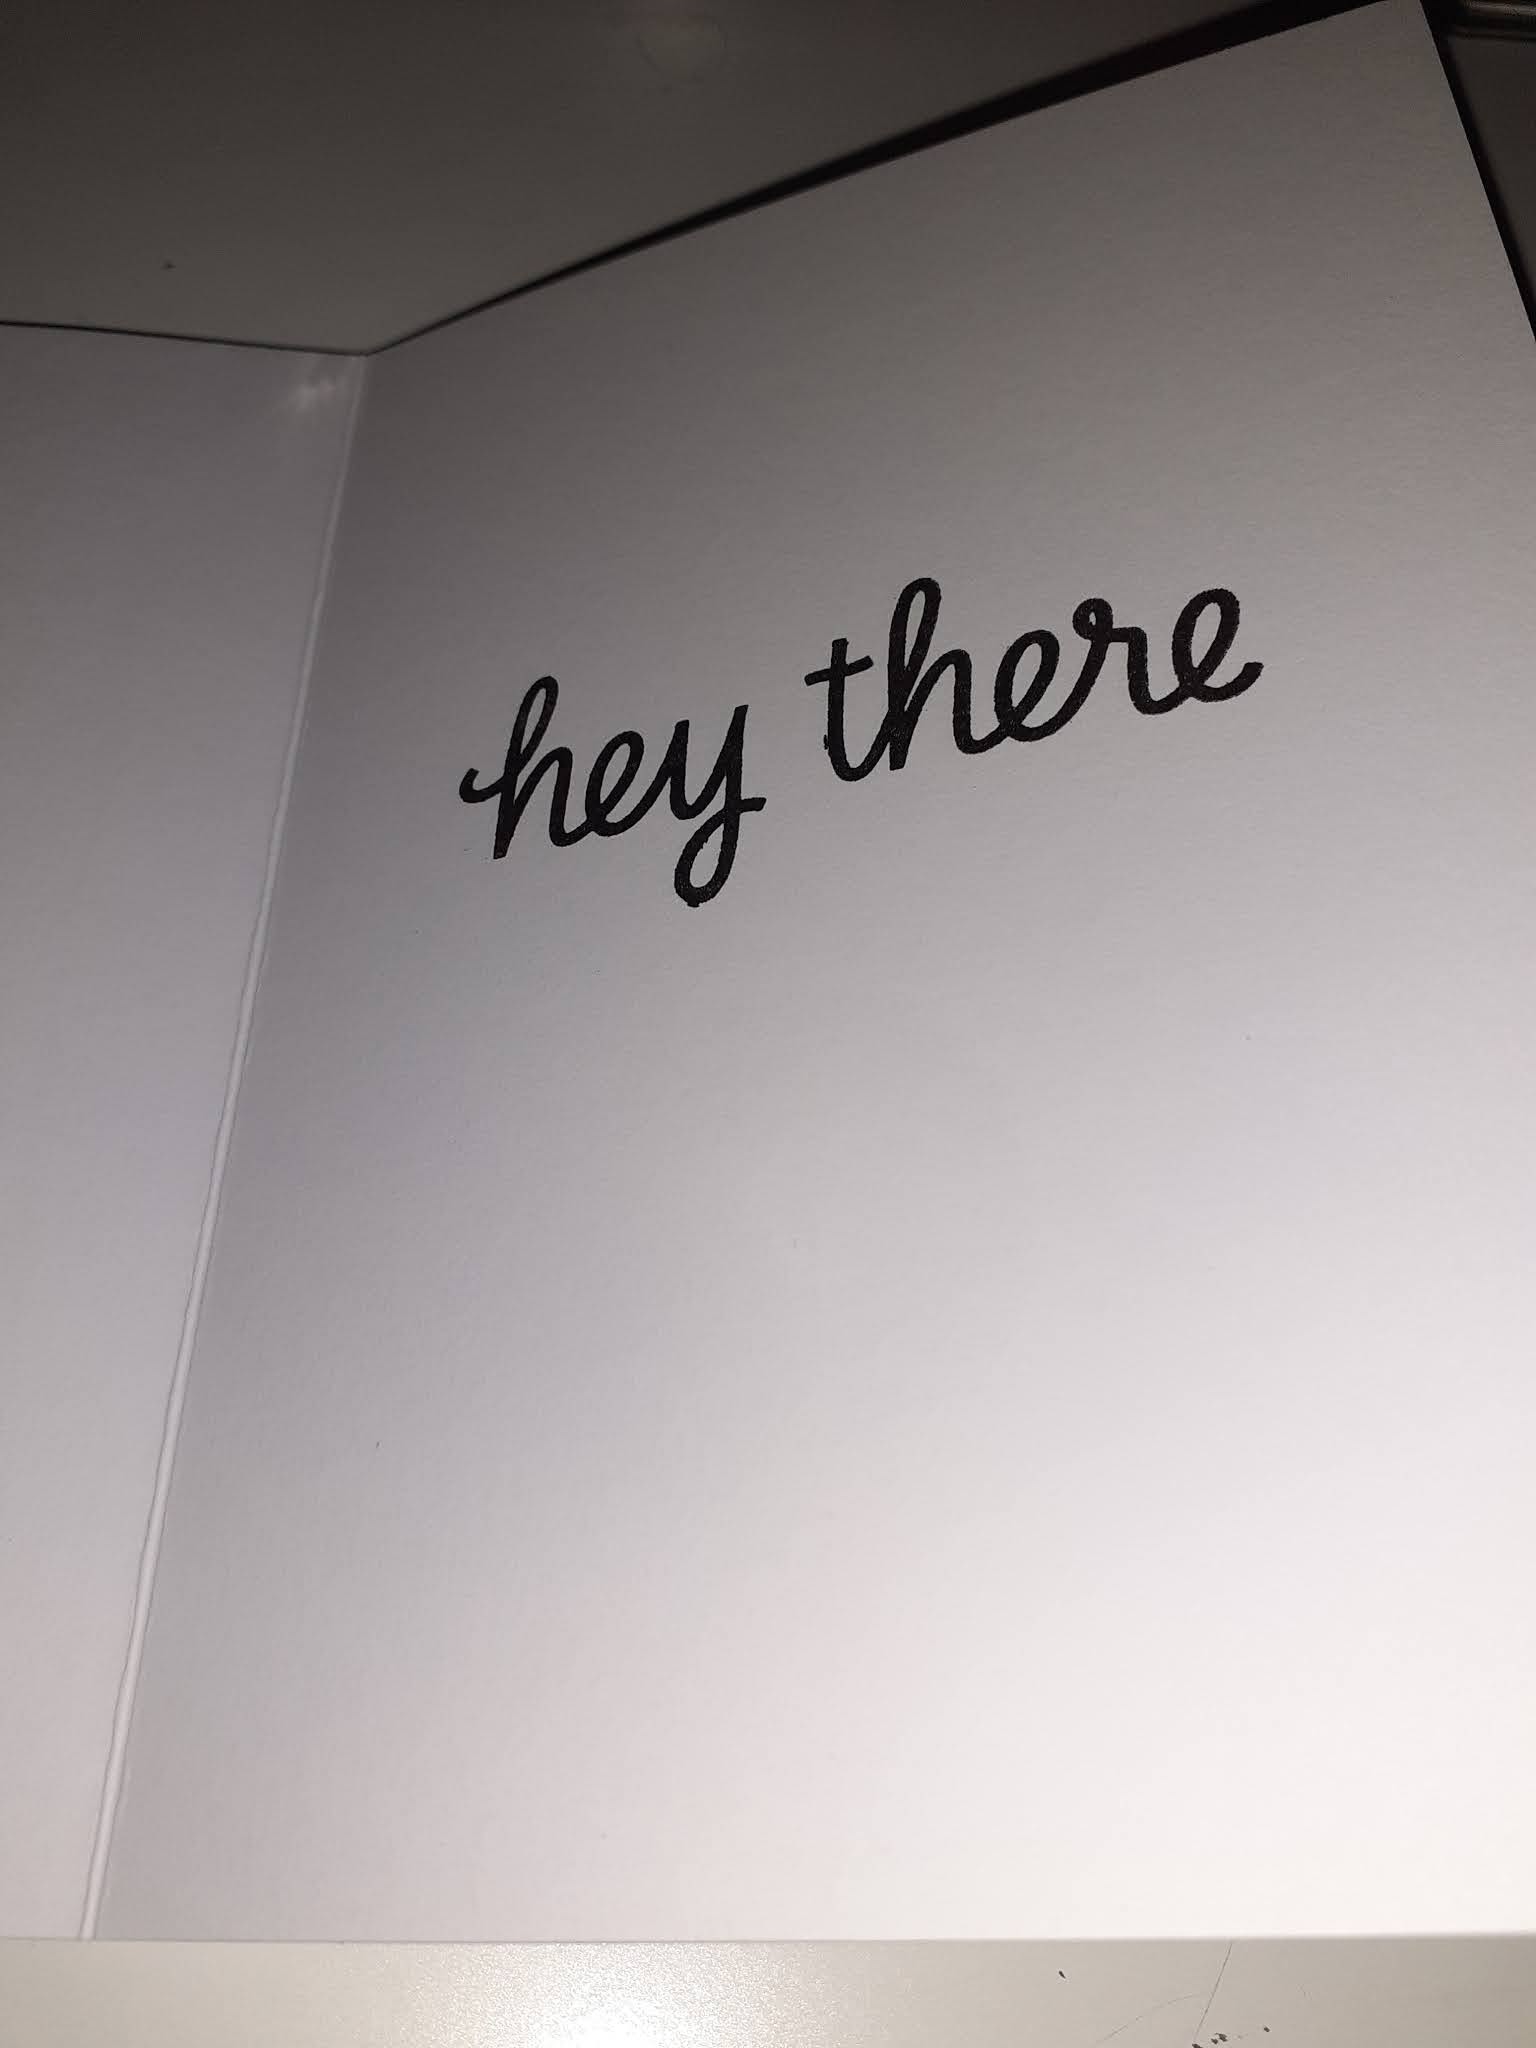 hey there